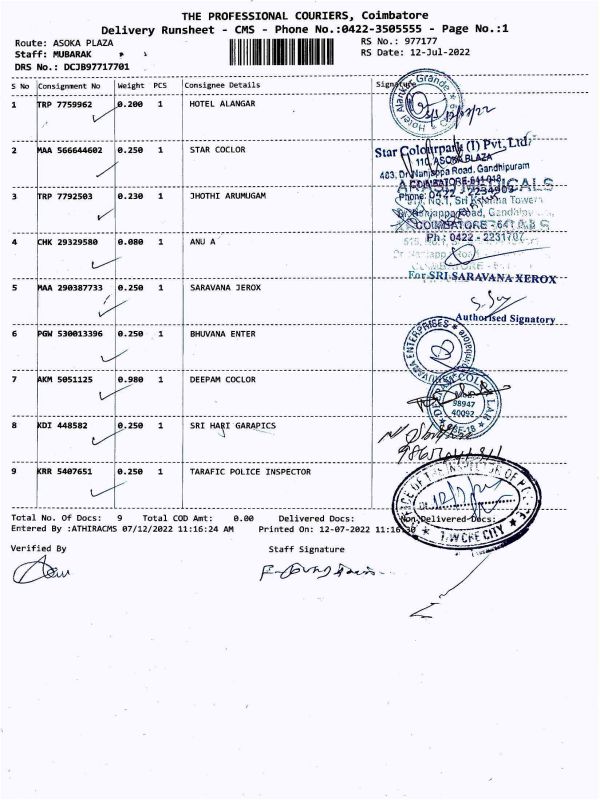 THE PROFESSIONAL COURIERS, Coimbatore
Delivery Runsheet - CMS - Phone No.:0422-3505555 - Page No.:1
Route: ASOKA PLAZA RS No.: 977177
Staff: MUBARAK RS Date: 12-Jul-2022
DRS No.: DCJB97717701
S No Consignment No Weight PCS Consignee Details Signature
1 TRP 7759962 0.200 1 HOTEL ALANGAR
Hotel Alankar Grande
2 MAA 566644602 0.250 1 STAR COCLOR
Star Colourpark (I) Pvt. Ltd.
110, ASOKA PLAZA
403, Dr. Nanjappa Road, Gandhipuram
COIMBATORE-641 018
3 TRP 7792503 0.230 1 JHOTHI ARUMUGAM
No.1, Sri Krishna Towers
Dr. Nanjappa Road,
COIMBATORE - 641
4 CHK 29329580 0.080 1 ANU A
Ph : 0422 - 2231707
5 MAA 290387733 0.250 1 SARAVANA JEROX
For SRI SARAVANA XEROX
Authorised Signatory
6 PGW 530013396 0.250 1 BHUVANA ENTER
BHUVANA ENTERPRISES
7 AKM 5051125 0.980 1 DEEPAM COCLOR
98947
40092
8 KDI 448582 0.250 1 SRI HARI GARAPICS
9 KRR 5407651 0.250 1 TARAFIC POLICE INSPECTOR
Total No. Of Docs: 9 Total COD Amt: 0.00 Delivered Docs: Non Delivered Docs:
Entered By :ATHIRACMS 07/12/2022 11:16:24 AM Printed On: 12-07-2022 11:16:30
Verified By Staff Signature